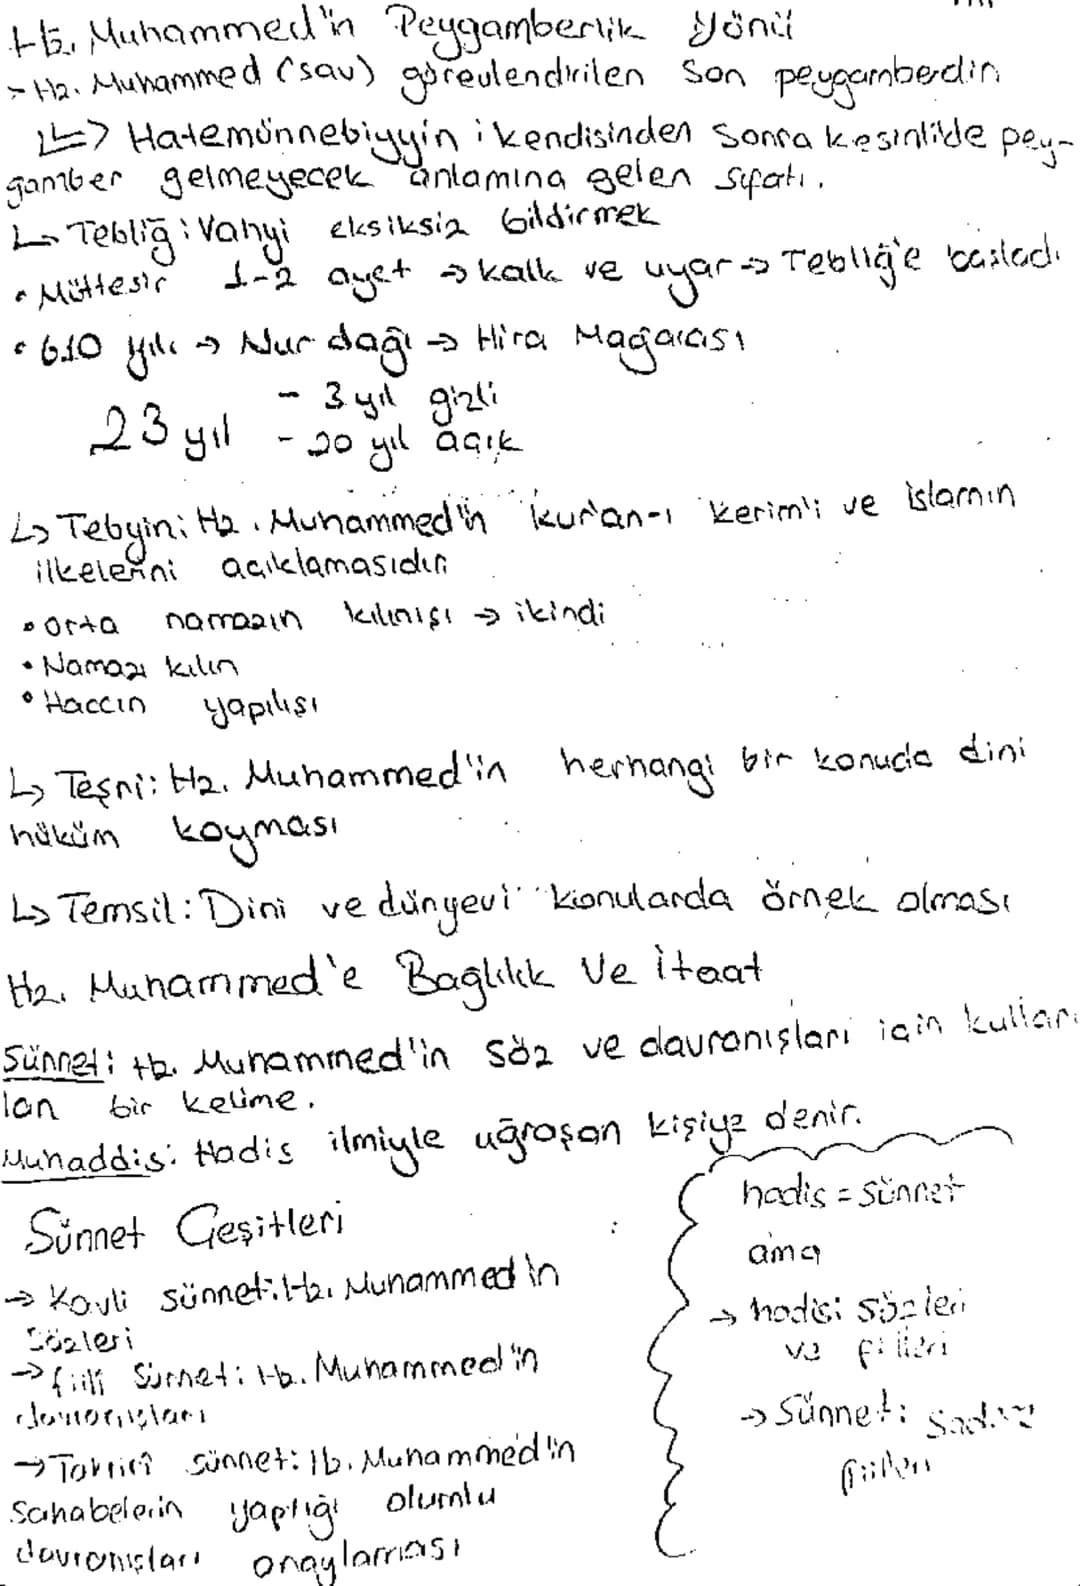 Hz. Muhammed'in Peygamberlik Yönü
- Hz. Muhammed (sav) görevlendirilen son peygamberdir
↳ Hatemünnebiyyin : kendisinden sonra kesinlikle pey-
gamber gelmeyecek anlamına gelen sıfatı.
↳ Tebliğ : Vahyi eksiksiz bildirmek
• Müttesir 1-2 ayet → kalk ve uyar → Tebliğ'e başladı
• 610 yılı → Nur dağı → Hira Mağarası
23 yıl - 3 yıl gizli
- 20 yıl açık
↳ Tebyin: Hz. Muhammed'in kur'an-ı kerim'i ve islamın
ilkelerini açıklamasıdır
• orta namazın kılınışı → ikindi
• Namazı kılın
• Haccın yapılışı
↳ Teşri: Hz. Muhammed'in herhangi bir konuda dini
hüküm koyması
↳ Temsil: Dini ve dünyevi konularda örnek olması
Hz. Muhammed'e Bağlılık Ve İtaat
Sünnet: Hz. Muhammed'in söz ve davranışları için kullanı
lan bir kelime.
Muhaddis: Hadis ilmiyle uğraşan kişiye denir.
Sünnet Çeşitleri
→ Kavli sünnet: Hz. Muhammed'in
sözleri
→ fiili Sünnet: Hz. Muhammed'in
davranışları
→ Takriri sünnet: Hz. Muhammed'in
Sahabelerin yaptığı olumlu
davranışları onaylaması
hadis = sünnet
ama
→ hadis: sözleri
ve fiilleri
→ Sünnet: Sadece
fiilleri